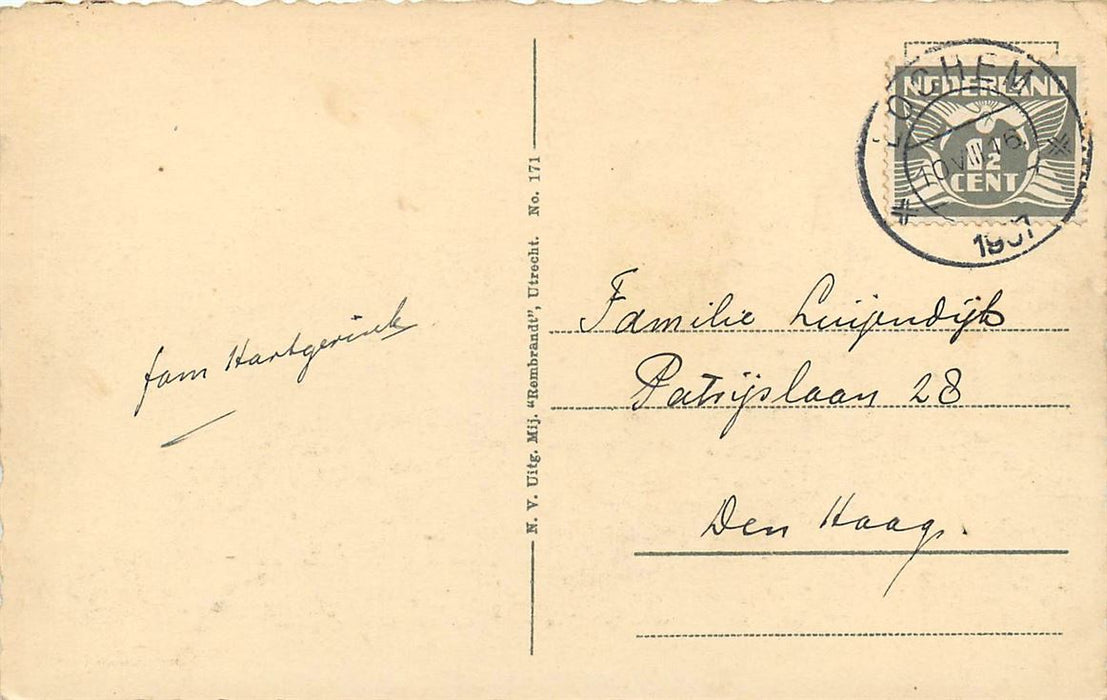 fam Hartgerink
N. V. Uitg. Mij. "Rembrandt", Utrecht. No. 171
LOCHEM
10 VIII 16
NEDERLAND
1½
CENT
Familie Luijendijk
Patrijslaan 28
Den Haag.